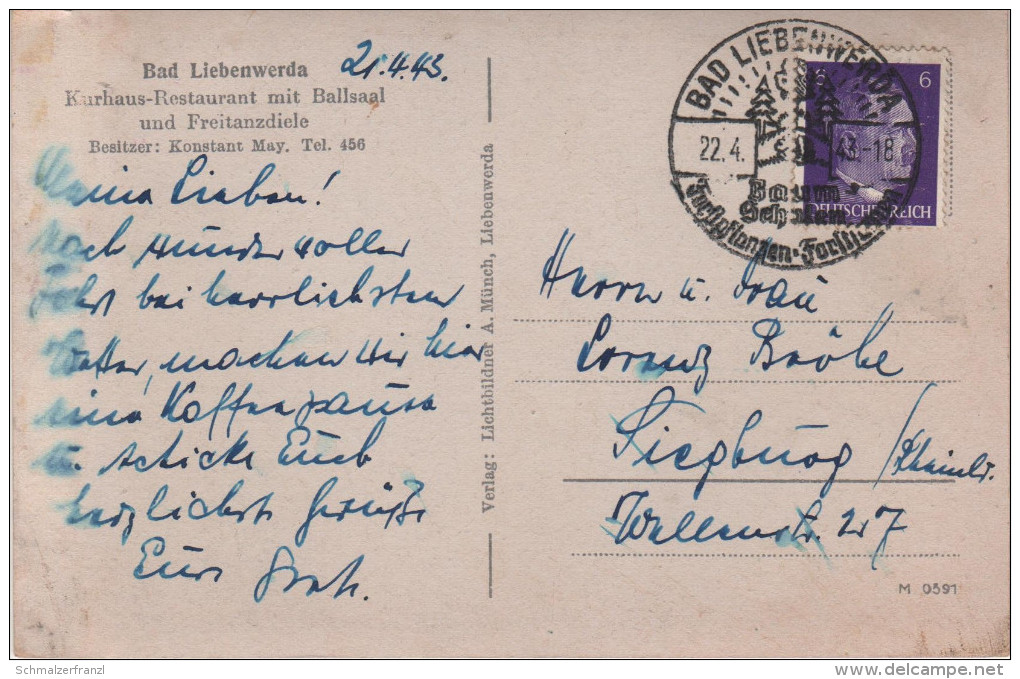 Bad Liebenwerda 21.4.43.
Kurhaus-Restaurant mit Ballsaal
und Freitanzdiele
Besitzer: Konstant May. Tel. 456
Meine Lieben!
Nach wundervoller
Fahrt bei herrlichstem
Wetter, machen wir hier
eine Kaffeepause
u. schicke Euch
herzlichste Grüße
Eure
Verlag: Lichtbildner A. Münch, Liebenwerda
BAD LIEBENWERDA
22.4. 43.-18
Baum
Schulen
Forstpflanzen
6 6
DEUTSCHES REICH
Herrn u. Frau
Lorenz Bröhl
Siegburg /Rheinld.
27
M 0391
Schmalzerfranzl
delcampe.net